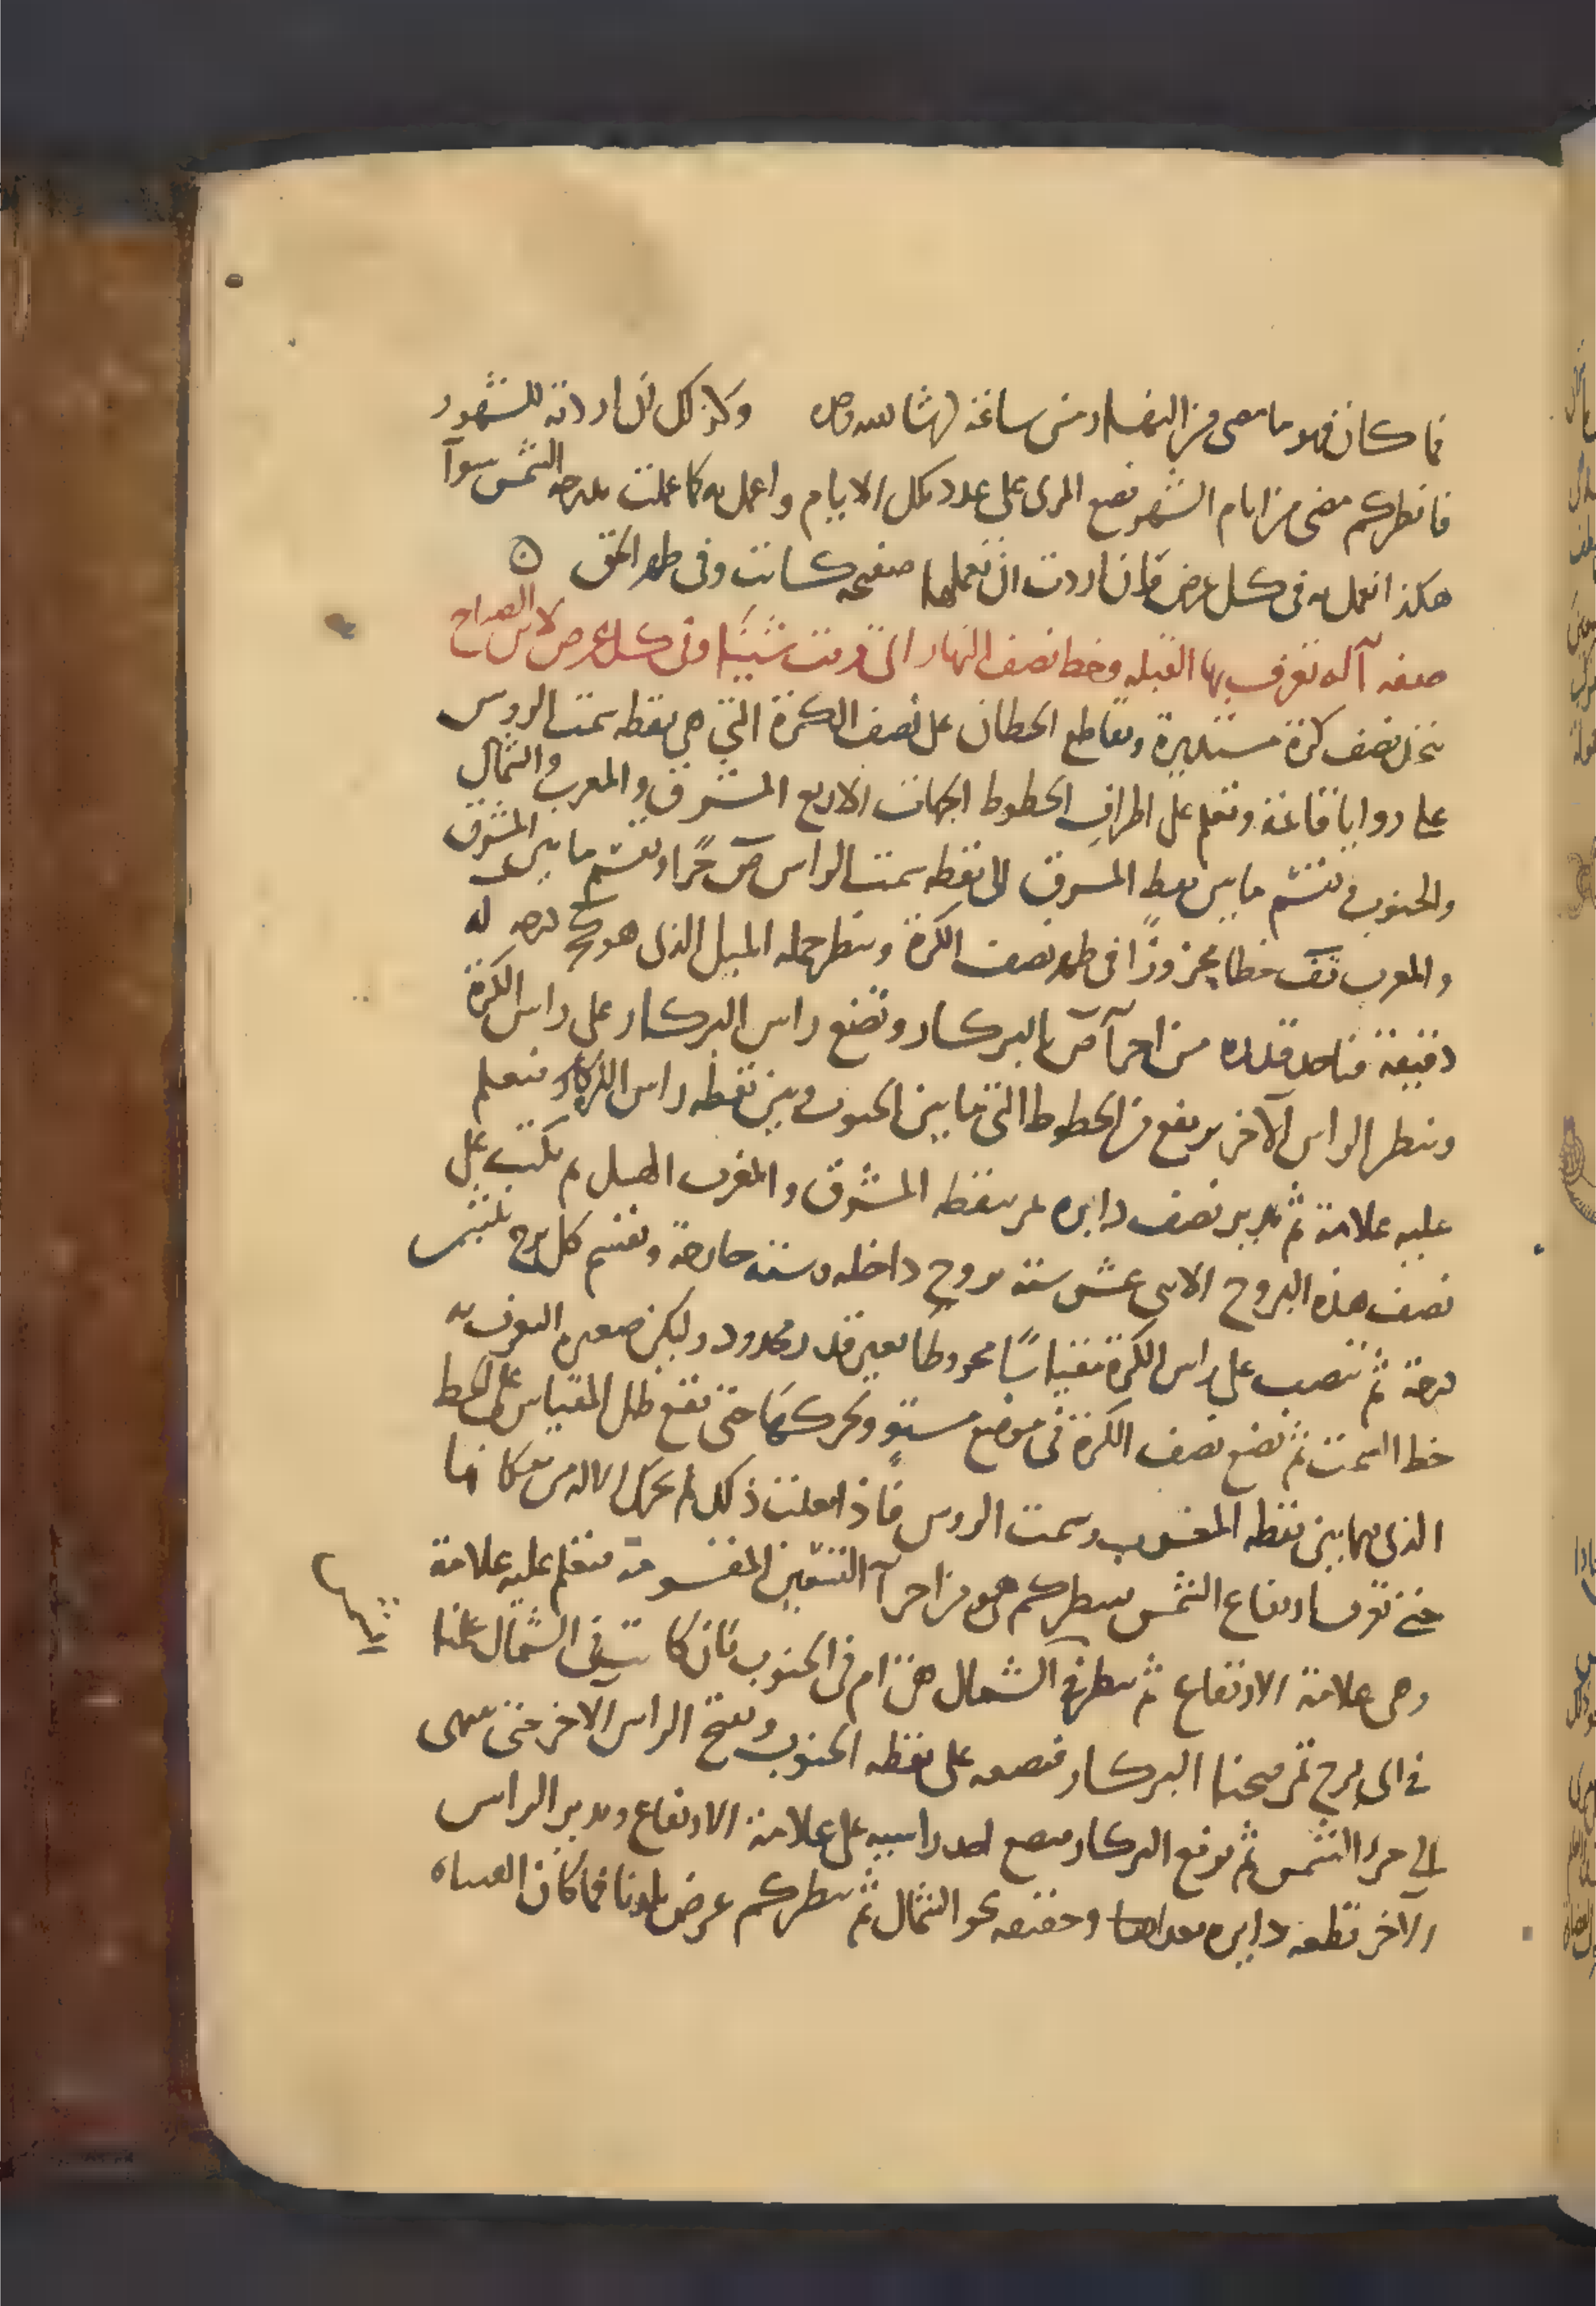 فما كان فهو ما مضى من النهار من ساعة وكذلك ان اردته للشهور
فانظر كم مضى من ايام الشهر فضع المرى على عدد تلك الايام واعمل به كما عملت بدرجة الشمس سوآ
هكذا تعمل به فى كل عرض فان اردت ان تعملها صفيحة كانت وفى ظهر الحق
صفه آلة تعرف بها القبله وخط نصف النهار اى وقت شيت وفى كل عرض لابن الصباح
تتخذ نصف كرة مستديرة وتقاطع الخطان على نصف الكرة التى هى نقطه سمت الروس
على زوايا قائمة وتعلم على اطراف الخطوط الجهات الاربع المشرق والمغرب والشمال
والجنوب وتقسم ما بين نقطة المشرق الى نقطه سمت الراس ص جزا وتقسم ما بين المشرق
والمغرب خطا محزوزا فى ظهر نصف الكرة وتنظر جمله الميل الذى هو كج درجه له
دقيقة فتاخذ قدره من اجزآ ص بالبركار وتضع راس البركار على راس الكرة
وتنظر الراس الآخر يقع من الخطوط التى ما بين الجنوب وبين نقطه راس الكرة فتعلم
عليه علامة ثم تدير نصف دايره تمر بنقطه المشرق والمغرب ثم تكتب على
نصف هذه البروج الاثنى عشر ستة بروج داخله وستة خارجة وتقسم كل برج بثلثين
درجة ثم تنصب على راس الكرة مقياسًا مخروطا بغير قدر محدود وليكن صغيرا لتعرف به
خط السمت ثم تضع نصف الكرة فى موضع مستو وتحركها حتى تقع ظل المقياس على الخط
الذى بين نقطه المغرب وسمت الروس فاذا فعلت ذلك لم تحرك الاله من مكانها
حتى تعرف ارتفاع الشمس تنظر كم هو من اجزآ التسعين المقسومة فتعلم عليه علامة
وهى علامة الارتفاع ثم تنظر فى الشمال هى ام فى الجنوب فان كانت فى الشمال علمنا
فى اى برج ثم فتحنا البركار فنضعه على نقطه الجنوب وتفتح الراس الآخر حتى تنتهى
الى جزء الشمس ثم ترفع البركار فتضع احد راسيه على علامة الارتفاع وتدير الراس
الآخر قطعه دايره نحو الشمال ثم تنظر كم عرض بلدنا فما كان